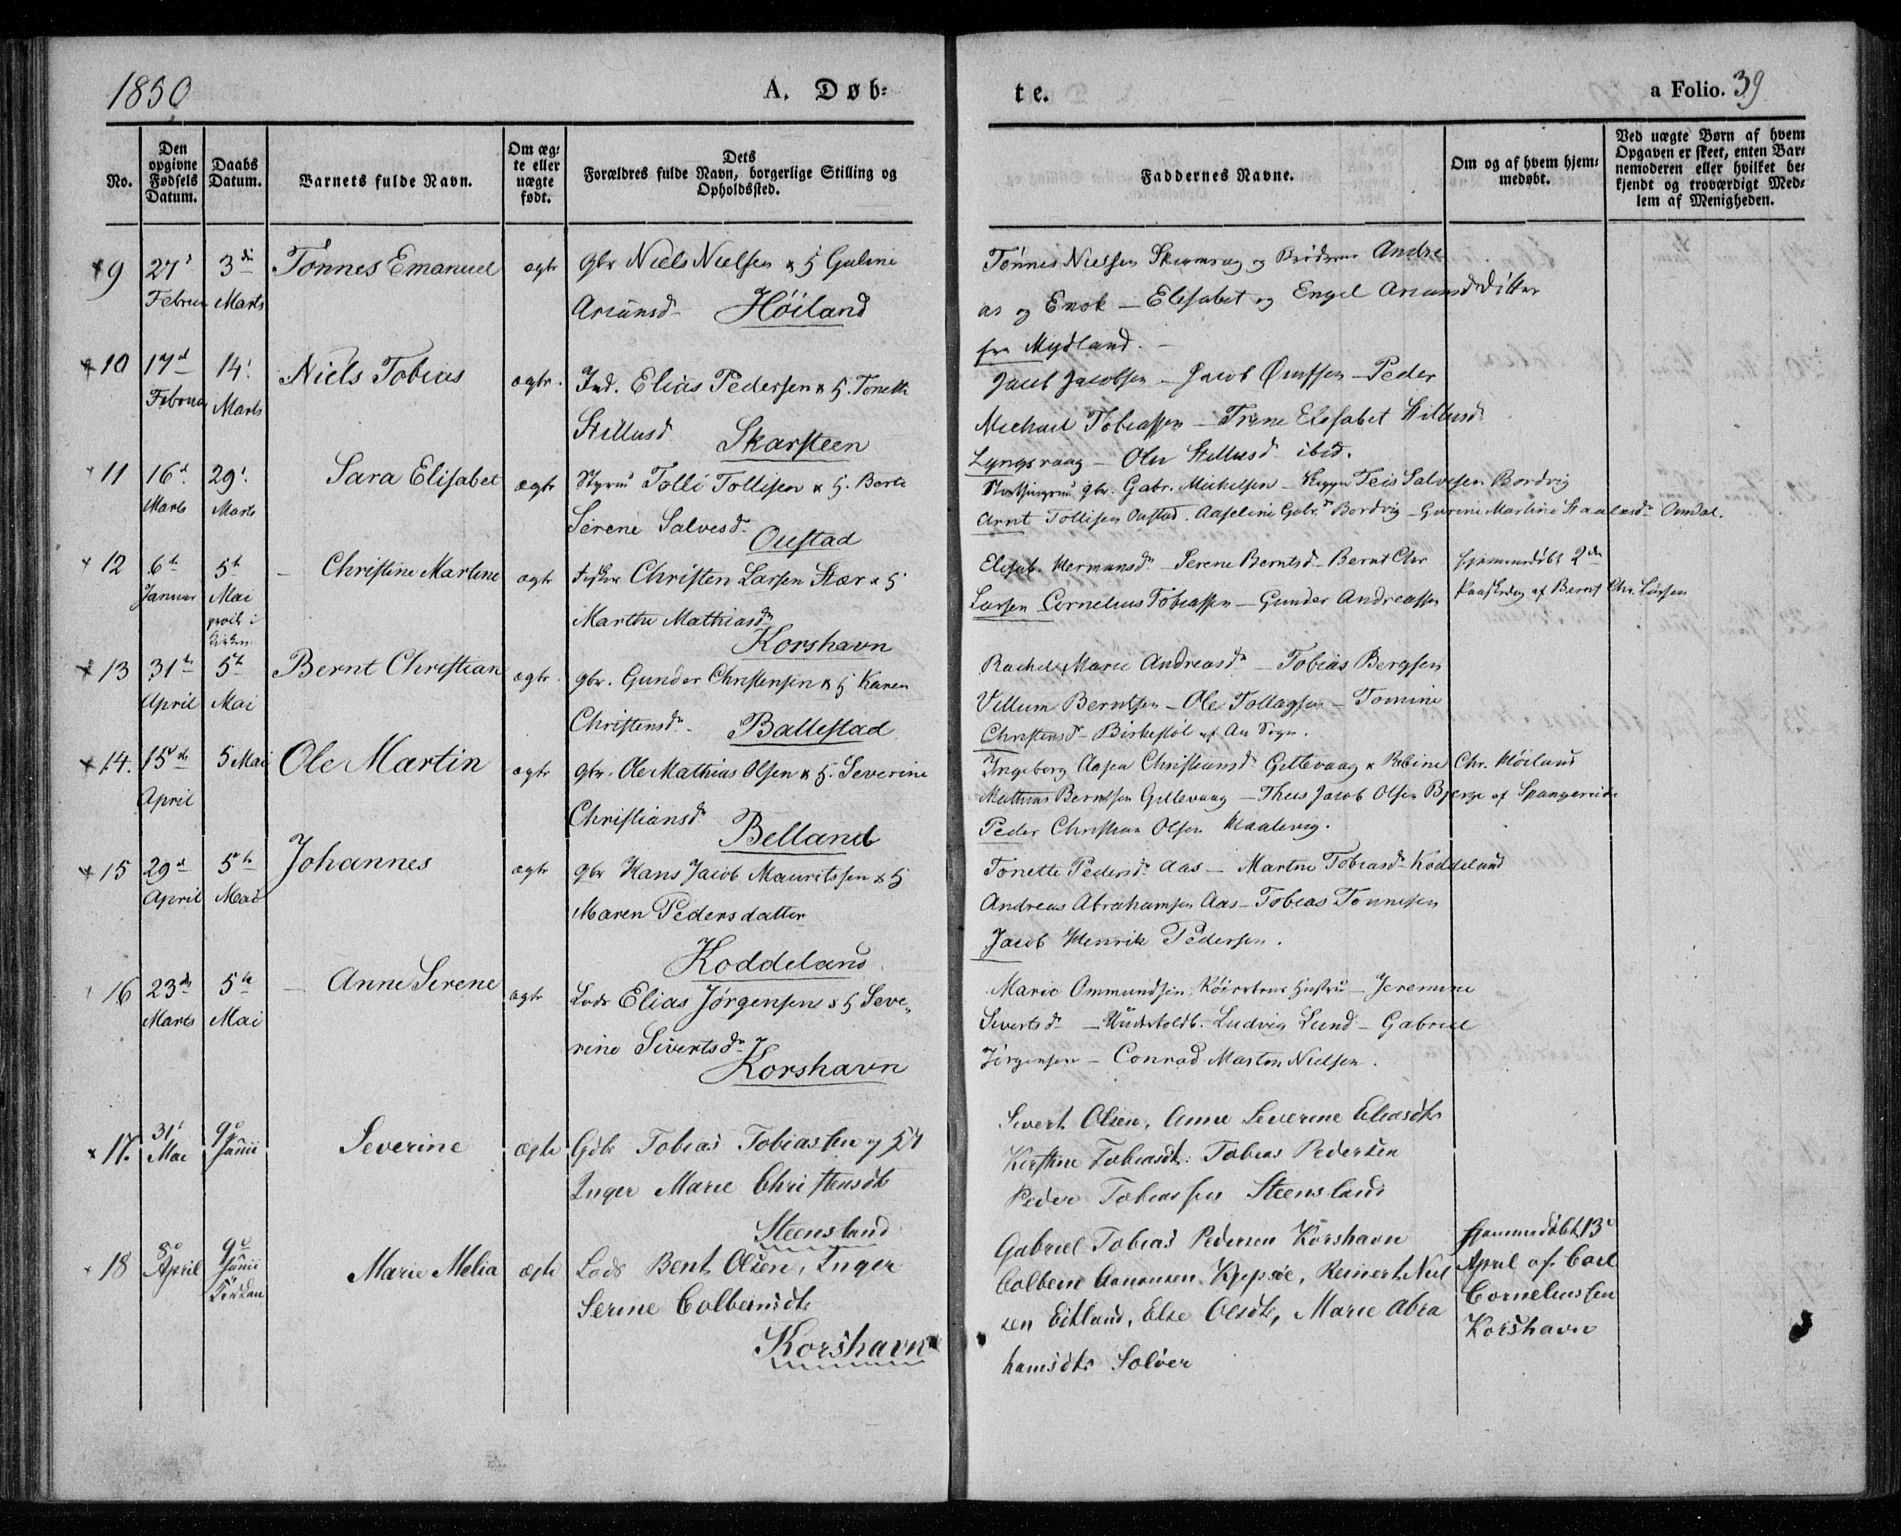 1850
A. Døb-
te.
a Folio. 39
No.
Den opgivne Fødsels Datum.
Daabs Datum.
Barnets fulde Navn.
Om ægte eller uægte født.
Dets Forældres fulde Navn, borgerlige Stilling og Opholdssted.
Faddernes Navne.
Om og af hvem hjemmedøbt.
Ved uægte Børn af hvem Opgaven er skeet, enten Barnemoderen eller hvilket bekjendt og troværdigt Medlem af Menigheden.
9 27 Februar 3die Marts Tønnes Emanuel ægte gbr Niels Nielsen & H Guline
Høiland
Tønnes Nielsen og Brødrene Andre
as og Enok — Elisabet og Engel
fra Mydland.
10 17d Februar 14 Marts Niels Tobias ægte. Ind. Elias Pedersen & H. Tonette
Stillusd Skarsteen
Jacob Jacobsen — Jacob — Peder
Michael Tobiassen — Trine Elisabet Stillusd
Lyngsvaag — Ole Stillusd ibid.
11 16d Marts 29 Marts Sara Elisabet ægte Styrm Tolli Tollisen & H. Berte
Serene Salvesdr Oustad
gbr. Gabr. Michelsen — Teis Salvesen Bordvig
Arnt Tollisen Oustad. Aaseline Gabr.dr Bordvig — Gurine Martine
12 6te Januar 5te Mai Christine Martine ægte Christen Larsen Stær & H
Marthe Mathiasdr
Korshavn
Elisab. Hermansdr Serene Berntsdr Bernt Chr
Larsen Cornelius Tobiassen — Gunder Andreassen
hjemmedøbt 2den
Paaskedag af Bernt Chr. Larsen
13 31te April 5te Mai Bernt Christian ægte. gbr. Gunder Christensen & H Karen
Christensdr Ballestad
Rachel Marie Andreasdr — Tobias Bergsen
Villum Berntsen — Ole Tollagsen — Tomine
Christensdr Birkestøl af Aa Sogn.
14. 15de April 5 Mai Ole Martin ægte gbr. Ole Mathias Olsen & H. Severine
Christiansdr Belland
Ingeborg Aasea Christiansdr Gillevaag & Chr. Høiland
Mathias Berntsen Gillevaag — Theis Jacob Olsen Bjerge af Spangereide
Peder Christian Olsen
15 29d April 5te Mai Johannes ægte gbr Hans Jacob Mauritssen & H
Maren Pedersdatter
Koddeland
Tonette Pedersdr Aas — Martne Tobiasdr Koddeland
Andreas Abrahamsen Aas — Tobias Tønnesen
Jacob Henrik Pedersen.
16 23de Marts 5te Mai Anne Serene ægte Lods Elias Jørgensen & H Seve-
rine Sivertsdr
Korshavn
Marie Ommundsen Hustru — Jeremine
Sivertsdr — Ludvig Lund — Gabriel
Jørgensen — Conrad Marton Nielsen.
17. 31 Mai 9de Junii Severine ægte Gbr Tobias Tobiassen og H
Inger Marie Christensdtr
Steensland
Sivert Olsen, Anne Severine Eliasdtr
Kirstine Tobiasdtr: Tobias Pedersen
Peder Tobiassen Steensland
18 8de April 9de Junii Kirken Marie Melia ægte Lods Bent Olsen, Inger
Serine Colbensdtr
Korshavn
Gabriel Tobias Pedersen Korshavn
Colben Kjepsøe, Reinert Niel
sen Eikland, Else Olsdtr, Marie Abra
hamsdtr Solver
Hjemmedøbt 13de
April af Carl
Corneliussen
Korshavn